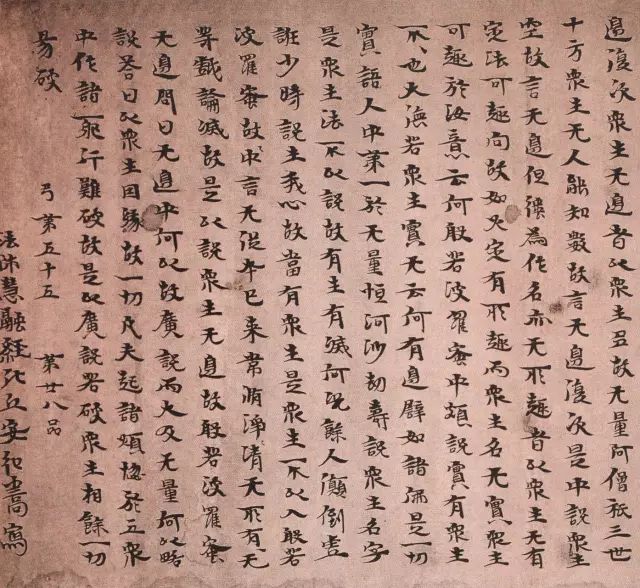 邊復次眾生无邊者以眾生多故无量阿僧祇三世
十方眾生无人能知數故言无邊復次是中說眾生
空故言无邊但強為作名亦无所趣者以眾生无有
定法可趣向故如火定有所趣而眾生名无實眾生
可趣於汝意云何般若波羅蜜中頗說實有眾生
不不也大德若眾生實无云何有邊譬如諸佛是一切
實語人中第一於无量恒河沙劫壽說眾生名字
是眾生法不以說故有生有滅何況餘人顛倒虛
誑少時說生我心故當有眾生是眾生不以入般若
波羅蜜故中言无從本已來常清淨清无所有无
等戲論滅故是以說眾生无邊故般若波羅蜜
无邊問曰无邊中何以故廣說而大及无量何以略
說答曰以眾生因緣故一切凡夫起諸煩惱於五眾
中作諸邪行難破故是以廣說若破眾生相餘一切
易破
弓第五十五 第廿八品
法師慧融經比丘安弘嵩寫